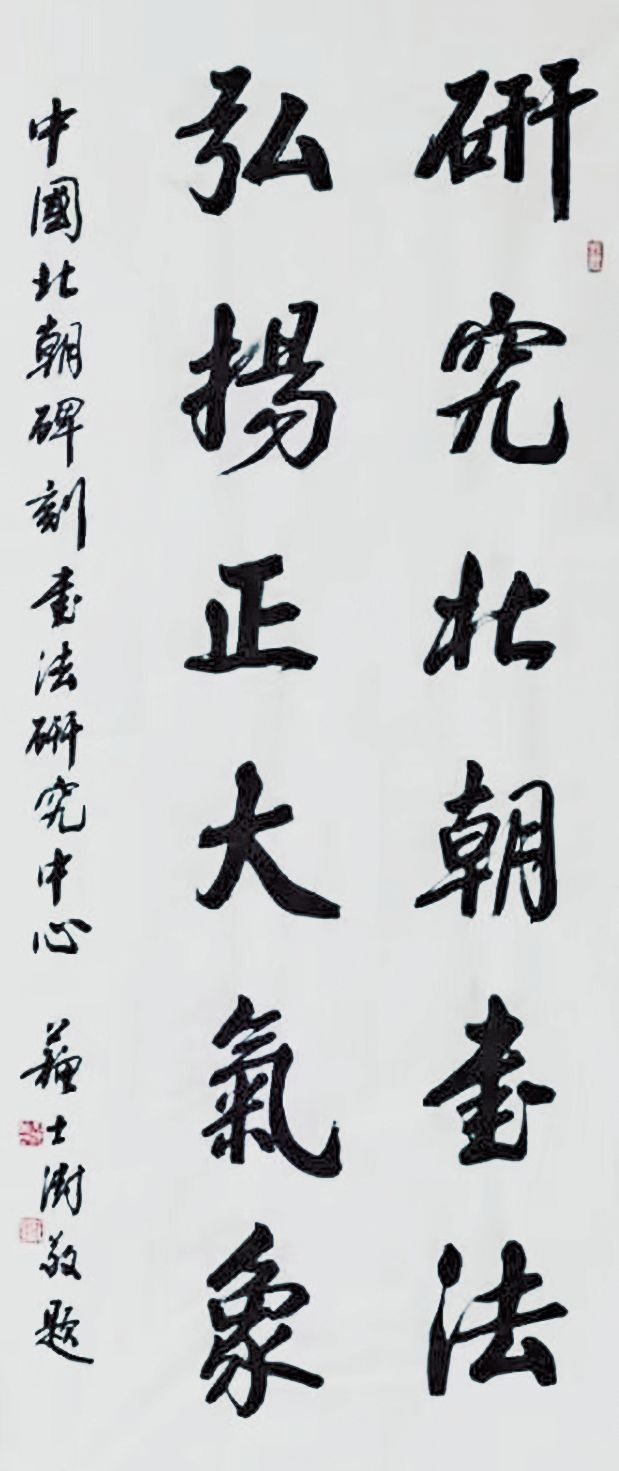 研究北朝書法
弘揚正大氣象
中國北朝碑刻書法研究中心 蘇士澍敬題